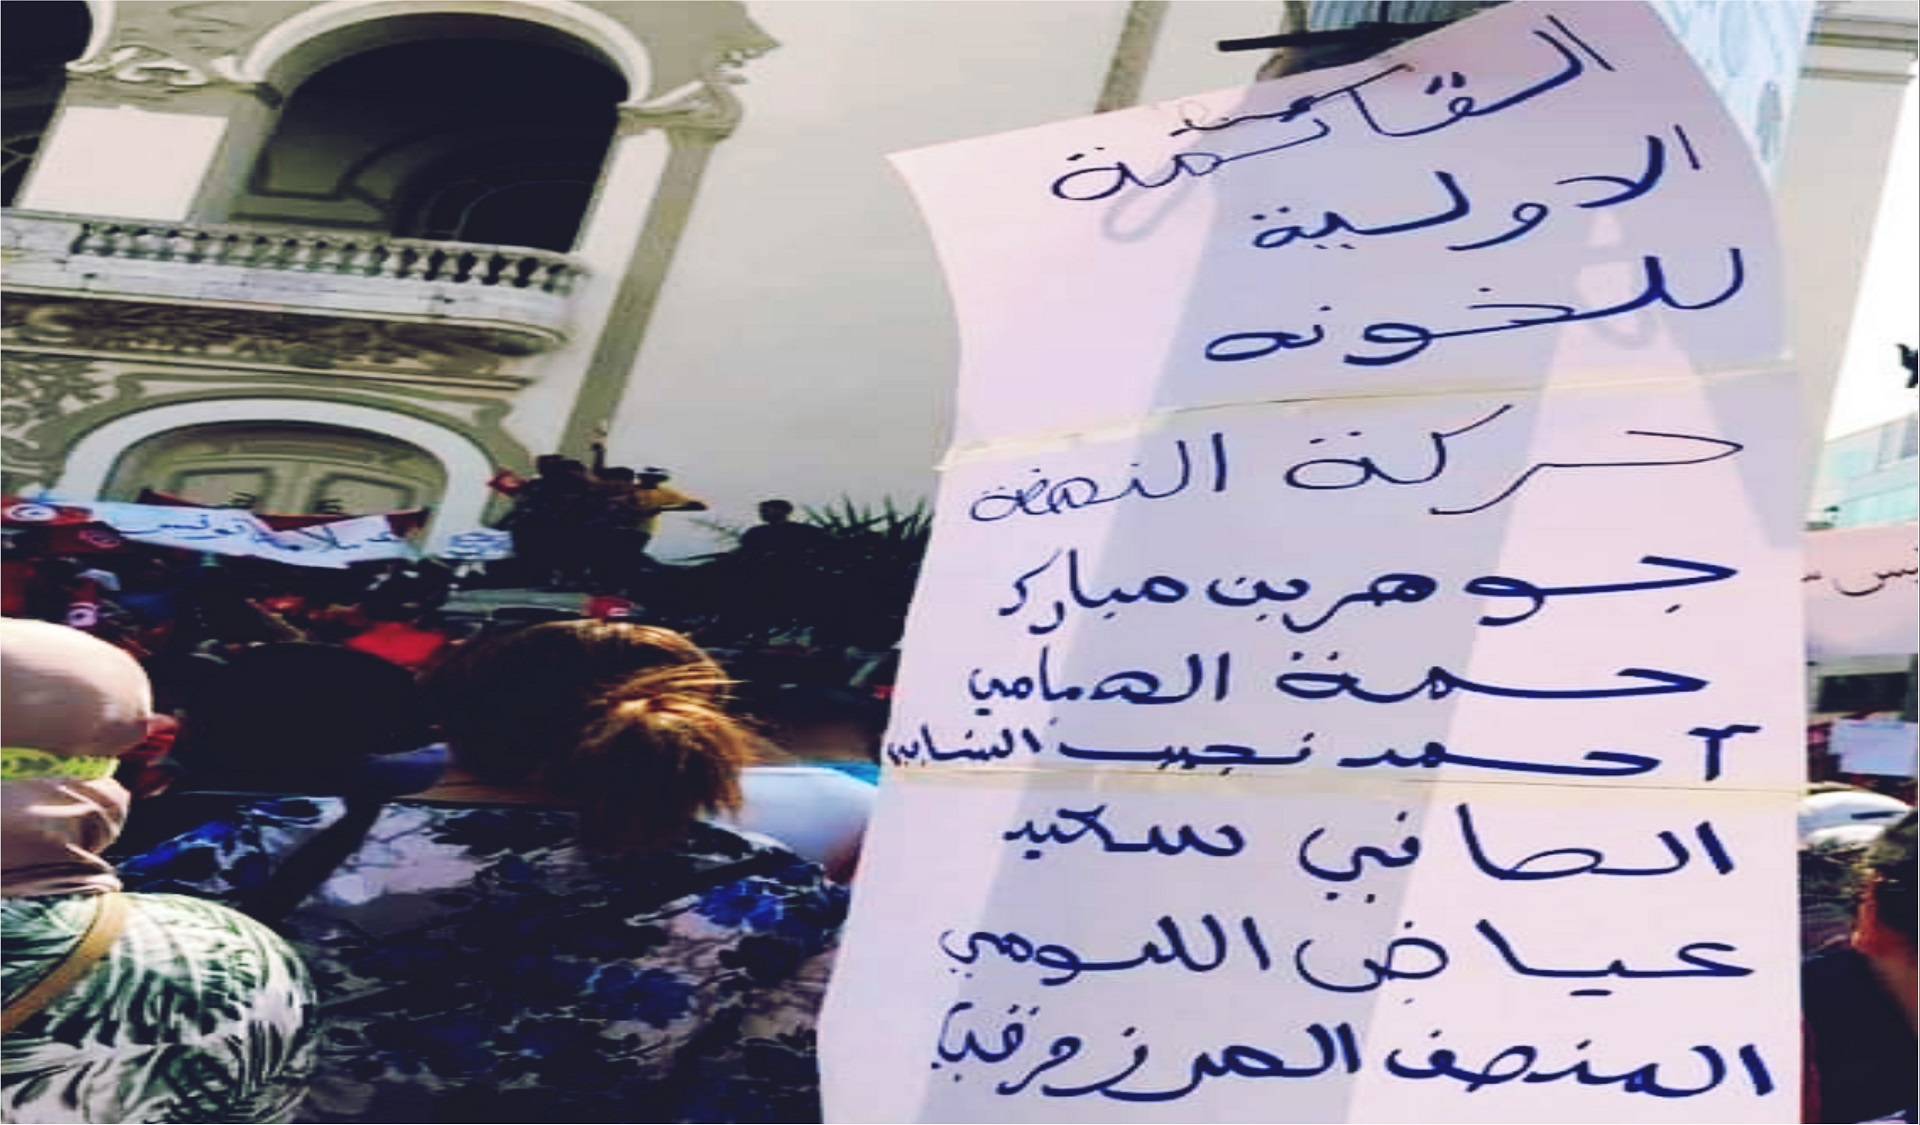 القائمة
الاولية
للخونه
حركة النهضة
جوهر بن مبارك
حمة الهمامي
أحمد نجيب الشابي
الصافي سعيد
عياض اللومي
المنصف المرزوقي
تونس